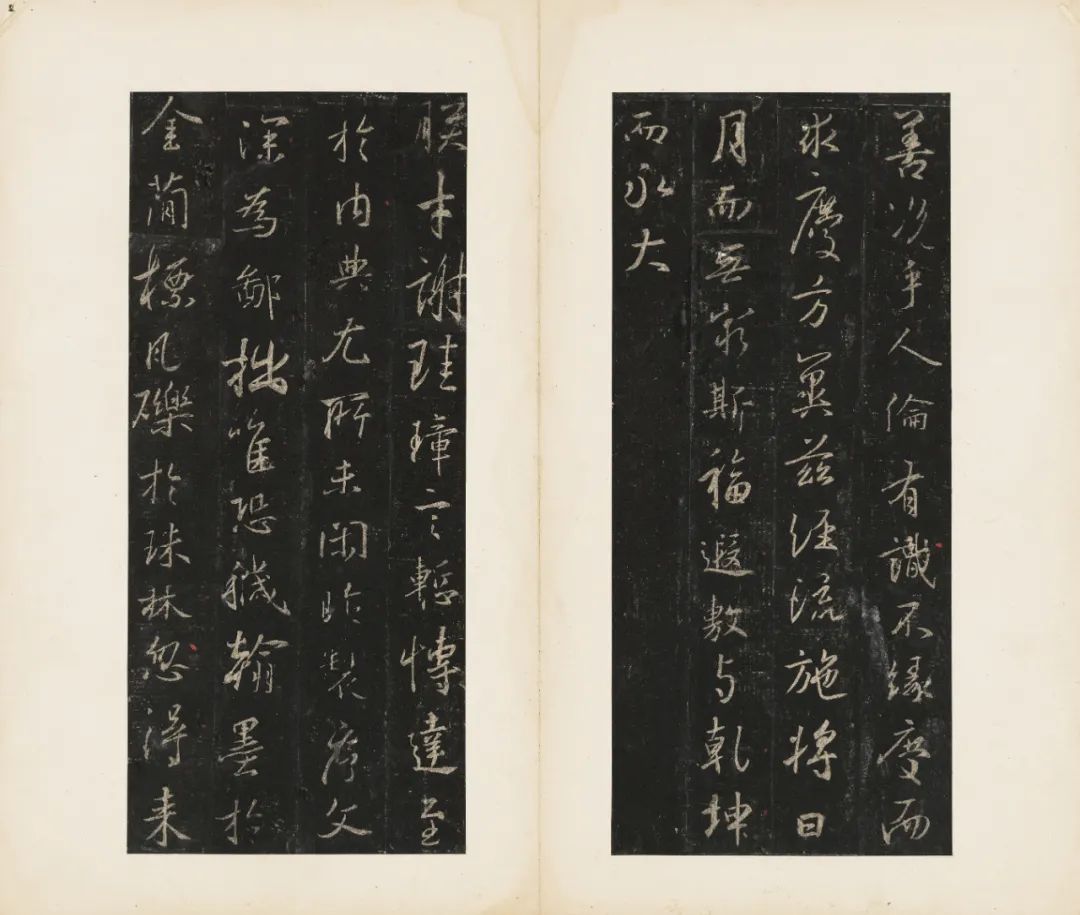 善況乎人倫有識不緣慶而
求慶方冀茲經流施將日
月而無窮斯福遐敷与乾坤
而永大
朕才謝珪璋言慙博達至
於內典尤所未閑昨製序文
深為鄙拙唯恐穢翰墨於
金簡標瓦礫於珠林忽得来